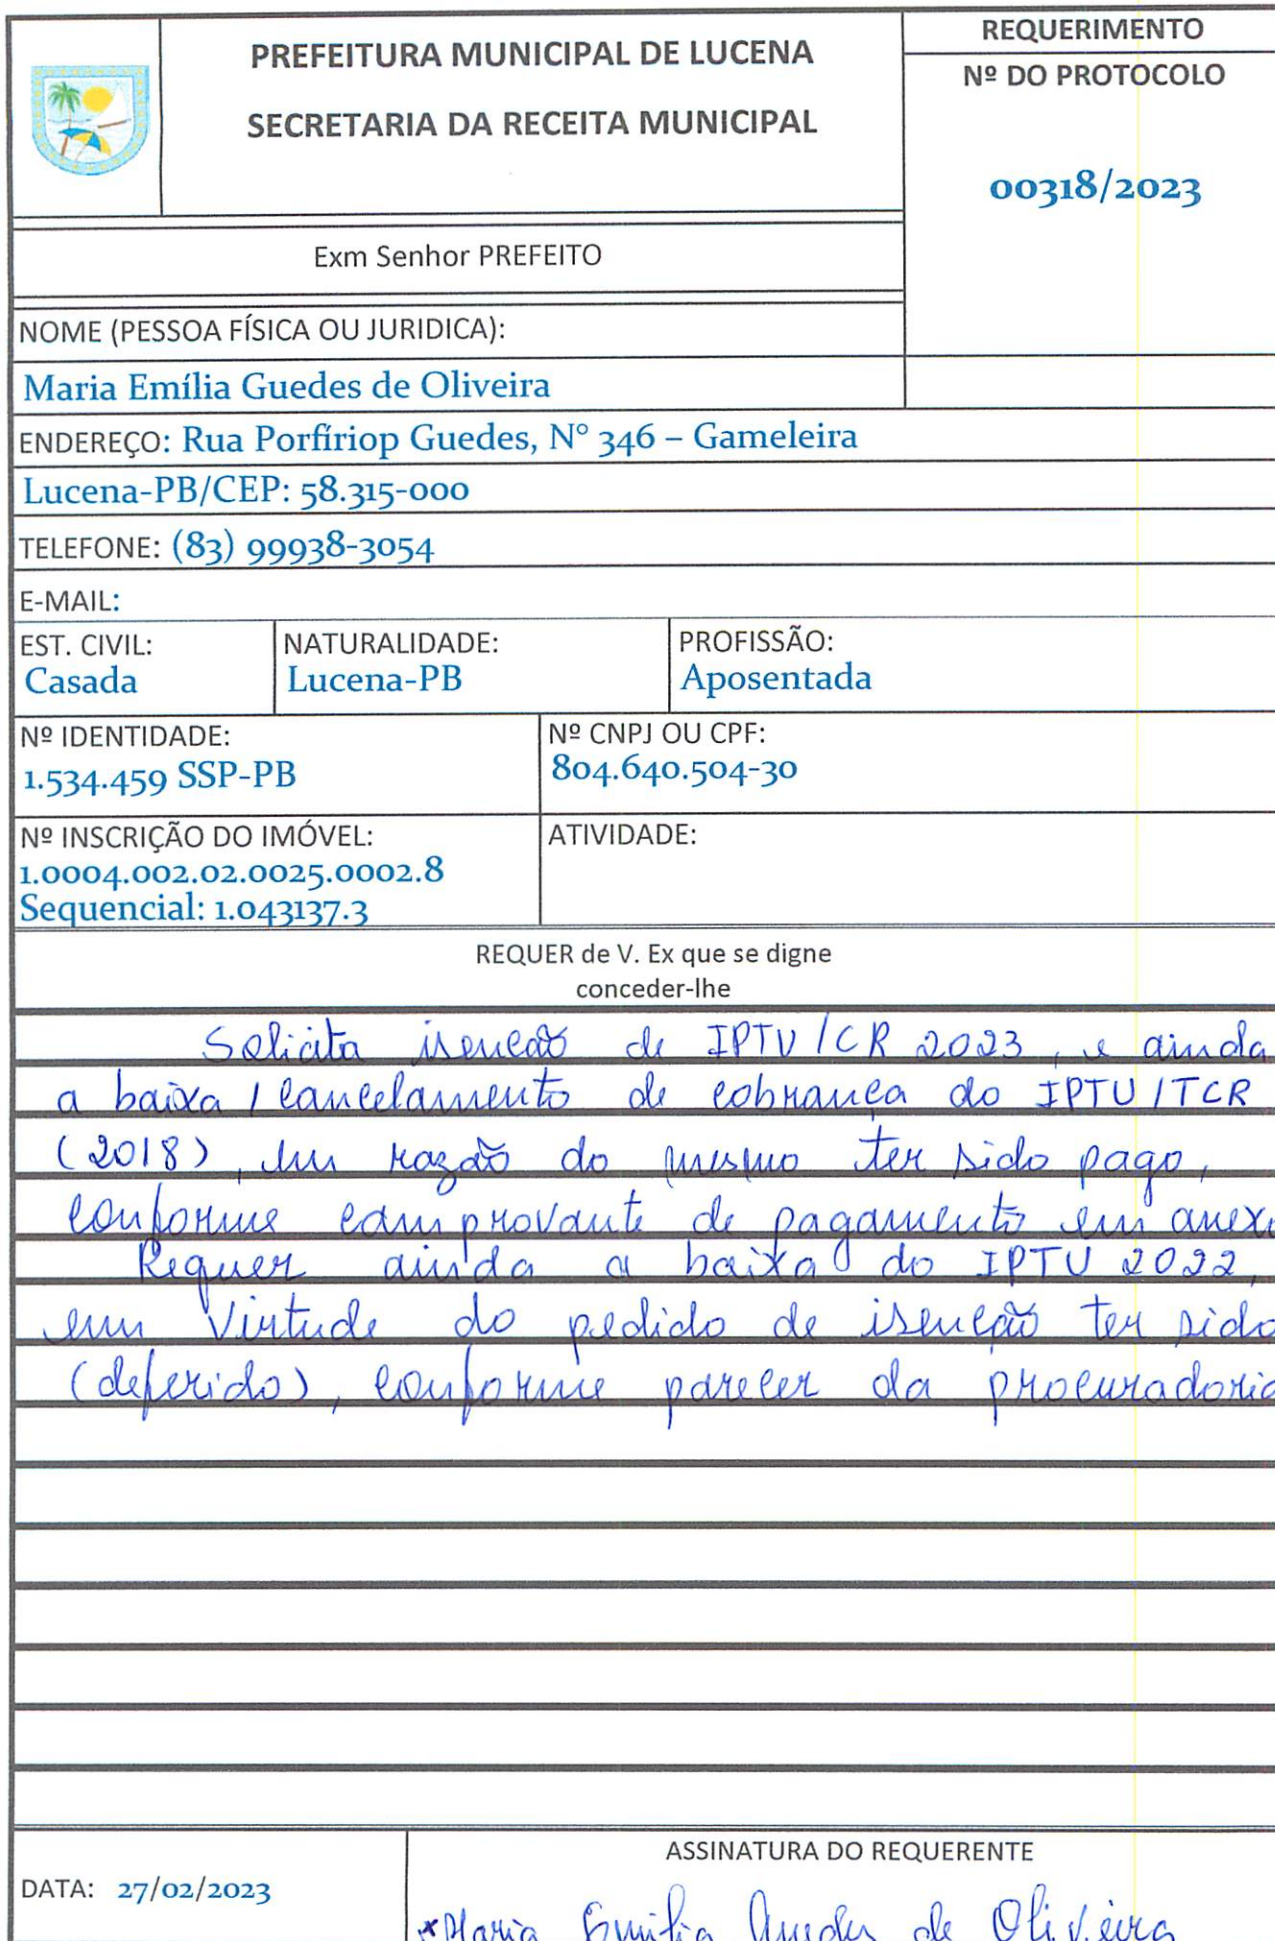 PREFEITURA MUNICIPAL DE LUCENA
SECRETARIA DA RECEITA MUNICIPAL
REQUERIMENTO
Nº DO PROTOCOLO
00318/2023
Exm Senhor PREFEITO
NOME (PESSOA FÍSICA OU JURIDICA):
Maria Emília Guedes de Oliveira
ENDEREÇO: Rua Porfíriop Guedes, N° 346 – Gameleira
Lucena-PB/CEP: 58.315-000
TELEFONE: (83) 99938-3054
E-MAIL:
EST. CIVIL:
Casada
NATURALIDADE:
Lucena-PB
PROFISSÃO:
Aposentada
Nº IDENTIDADE:
1.534.459 SSP-PB
Nº CNPJ OU CPF:
804.640.504-30
Nº INSCRIÇÃO DO IMÓVEL:
1.0004.002.02.0025.0002.8
Sequencial: 1.043137.3
ATIVIDADE:
REQUER de V. Ex que se digne
conceder-lhe
Solicita isencão de IPTU/CR 2023, e ainda
a baixa/cancelamento de cobranca do IPTU/TCR
(2018), em razão do mesmo ter sido pago,
conforme comprovante de pagamento em anexo
Requer ainda a baixa do IPTU 2022,
em virtude do pedido de isenção ter sido
(deferido), conforme parecer da procuradoria
DATA: 27/02/2023
ASSINATURA DO REQUERENTE
×Maria Emilia Guedes de Oliveira